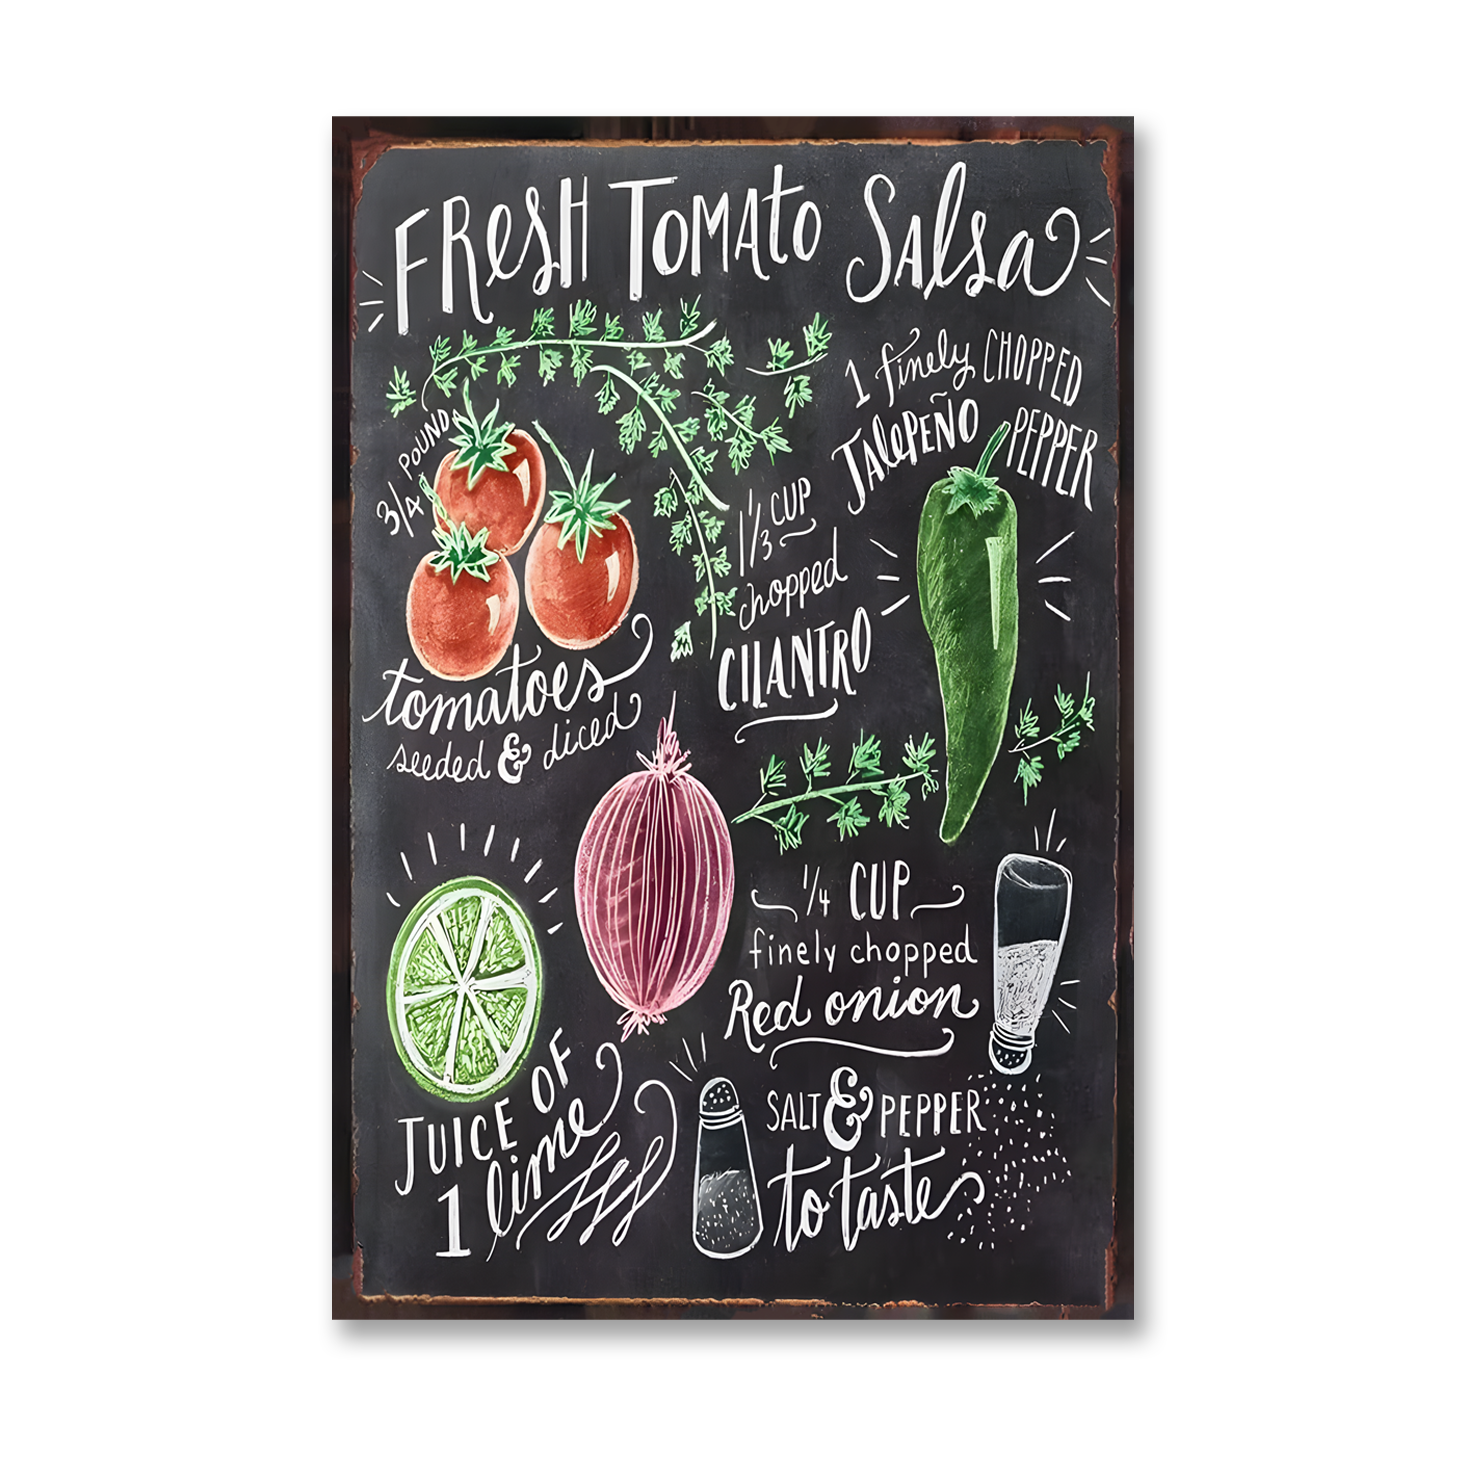 FResH TOMAto SAlsa
3/4 POUND
tomatoes
seeded & diced
1 finely CHOPPED
JAlePEÑO PEPPER
1 1/3 CUP
chopped
CILANTRO
1/4 CUP
finely chopped
Red onion
JUICE OF
1 lime
SALT & PEPPER
to taste